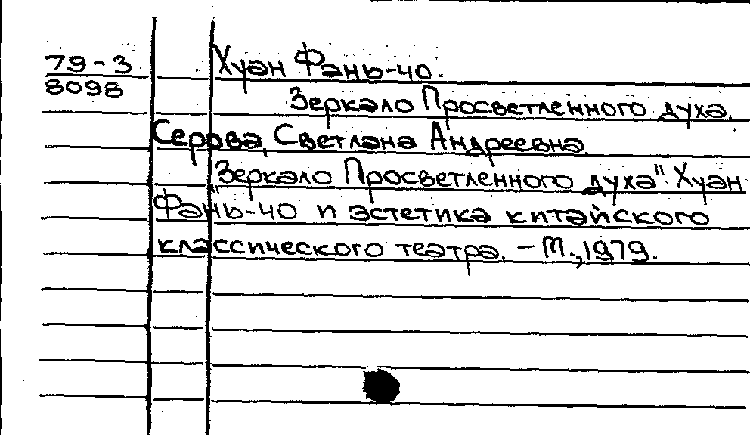 79-3
8098
Хуан Фань-чо.
Зеркало Просветленного духа.
Серова, Светлана Андреевна
"Зеркало Просветленного духа" Хуан
Фань-чо и эстетика китайского
классического театра. - М., 1979.